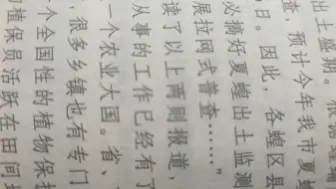 出土盛期。
查，预计今年我市夏蝗
日。因此，各蝗区县
必搞好夏蝗出土监测
展拉网式普查……”
读了以上两则报道，
从事的工作已经有了
一个农业大国。省、
，很多乡镇也有专门
个全国性的植物保
植保员活跃在田间